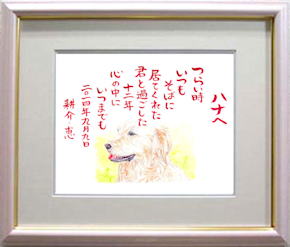 ハナへ
つらい時
いつも
そばに
居てくれた
君と過ごした
十二年
心の中に
いつまでも
二〇一四年九月九日
耕介 恵